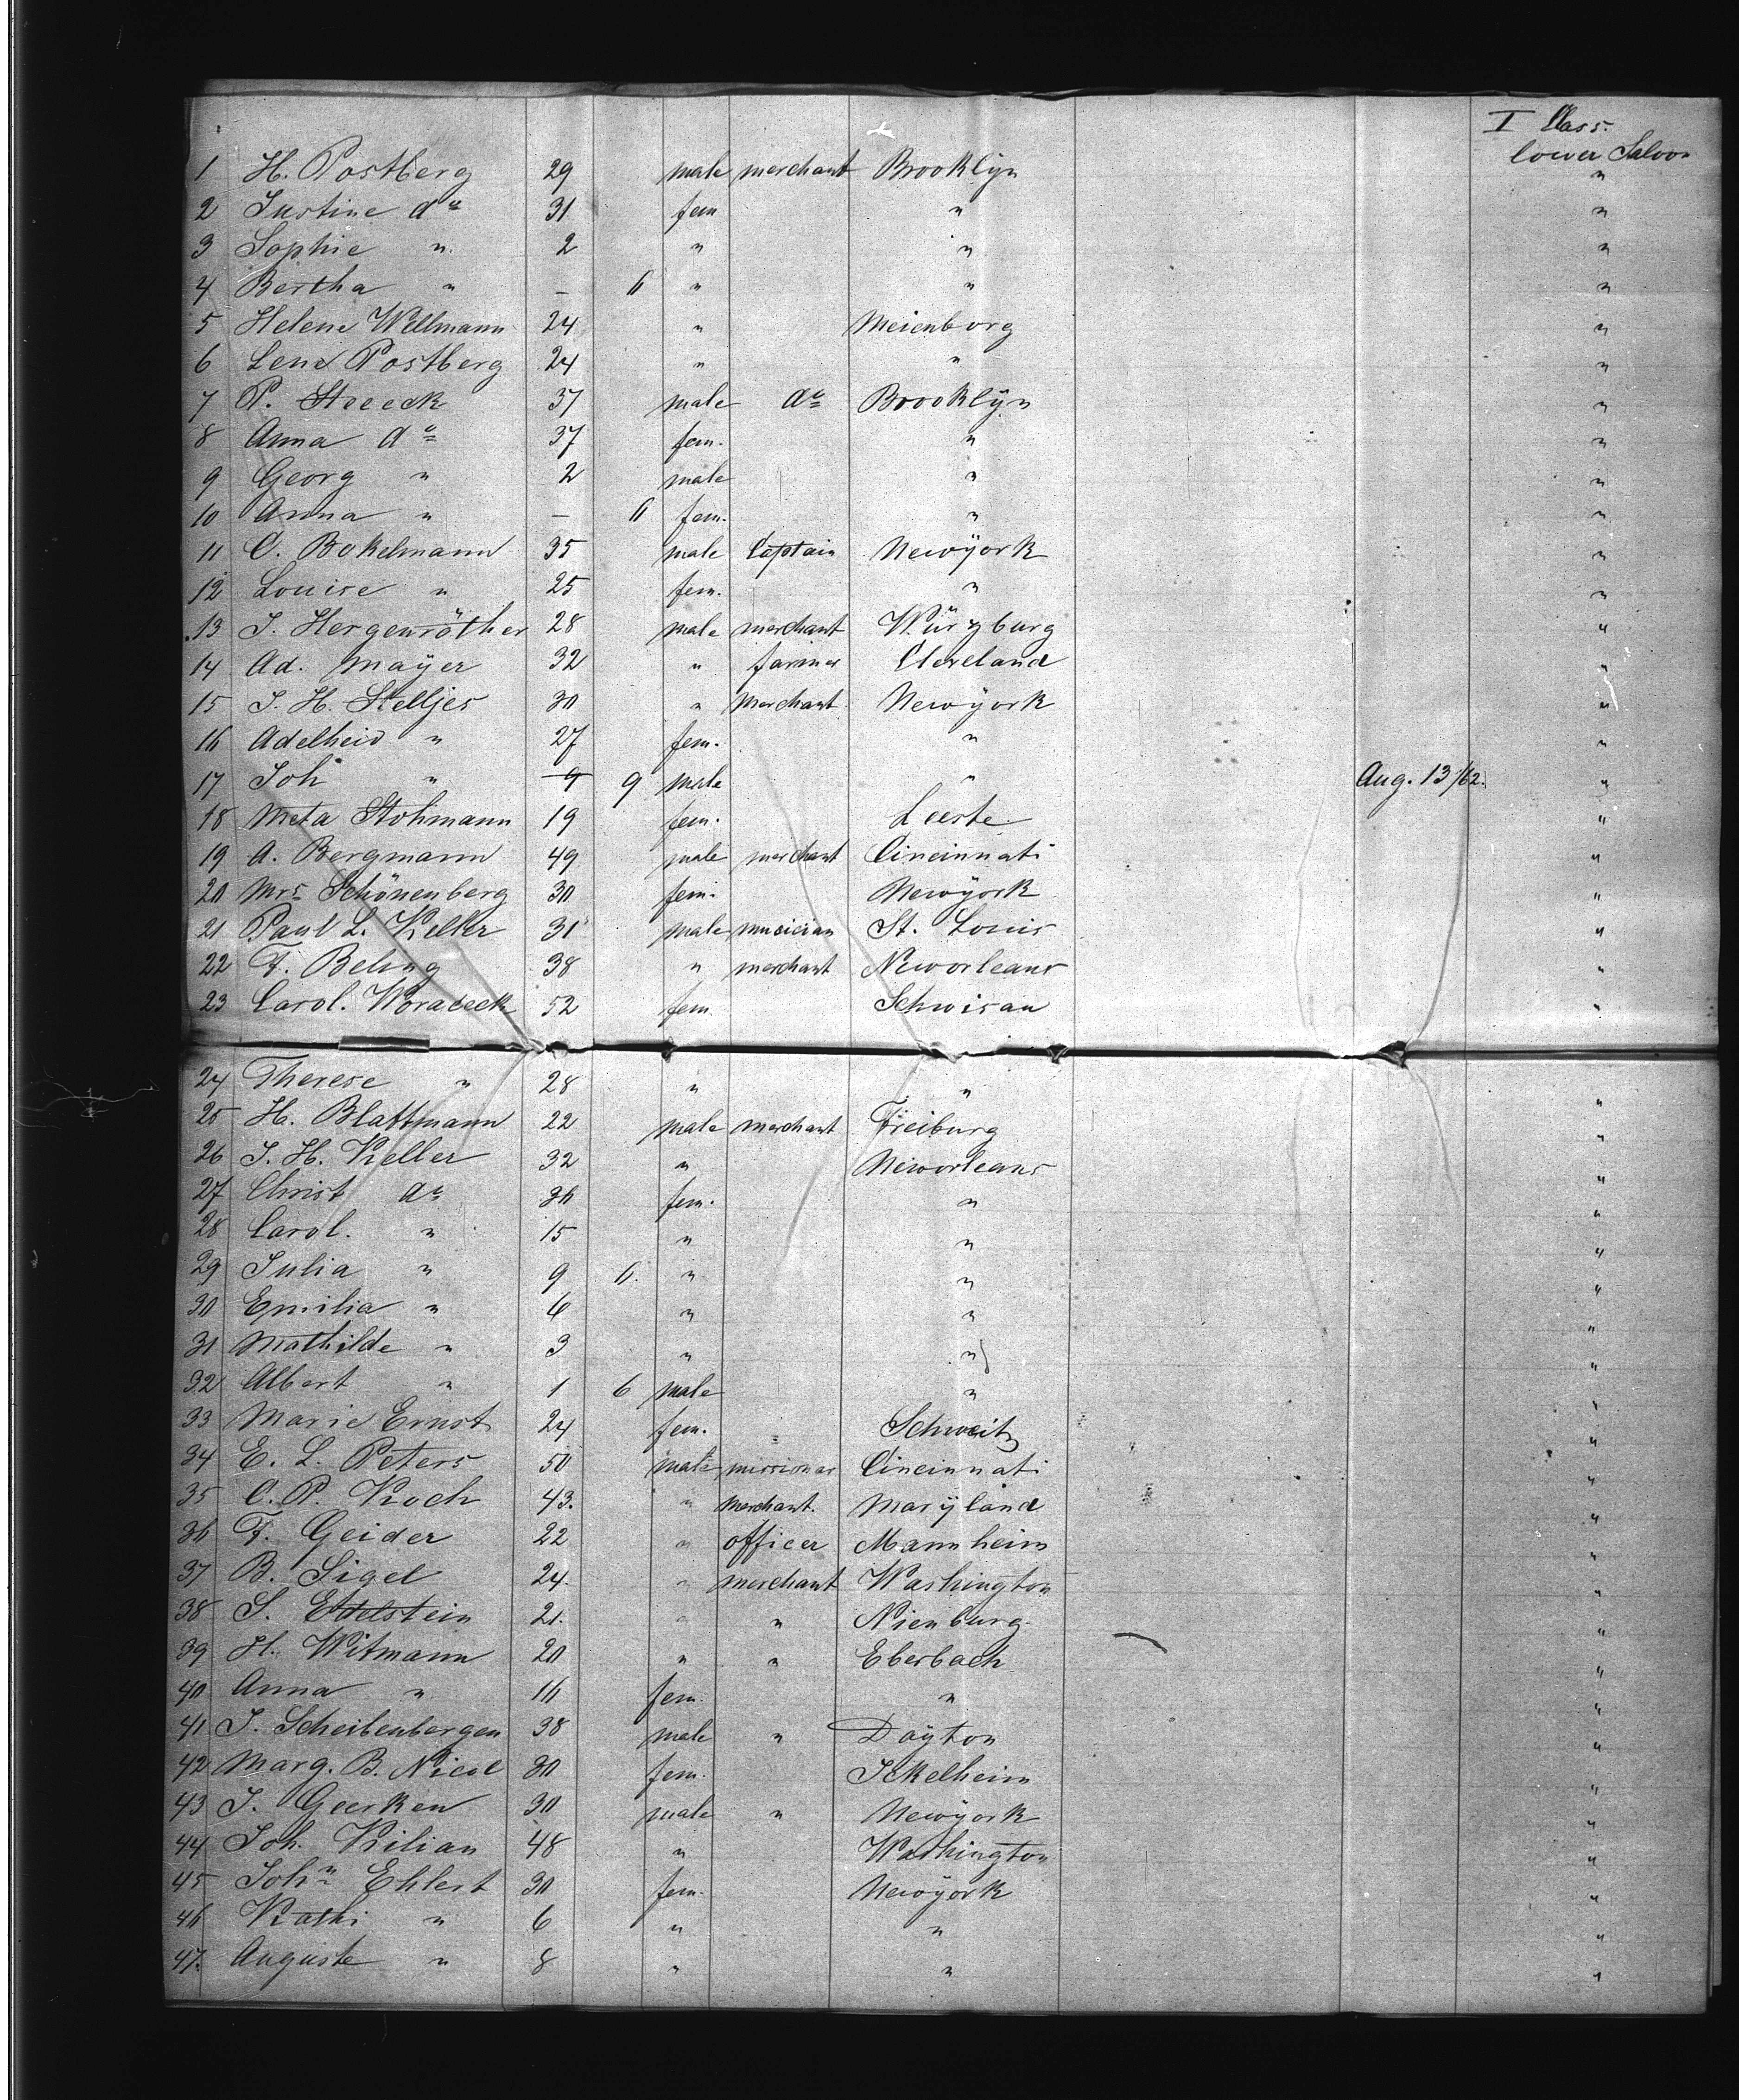 I Class.
lower Saloon
1 H. Postberg 29 male merchant Brooklÿn "
2 Justine do 31 fem " "
3 Sophie " 2 " " "
4 Bertha " — 11 " " "
5 Helene Wellmann 24 " Meienborg "
6 Lena Postberg 24 " " "
7 P. Steeck 37 male do Brooklÿn "
8 Anna do 37 fem. " "
9 Georg " 2 male " "
10 Anna " — 11 fem. " "
11 C. Bokelmann 35 male Captain Newÿork "
12 Louise " 25 fem. " "
13 J. Hergenröther 28 male merchant Würzburg "
14 Ad. Maÿer 32 " farmer Cleveland "
15 J. H. Stelljes 30 " merchant Newÿork "
16 Adelheid " 27 fem. " "
17 Joh " 9 9 male " Aug. 13/62. "
18 Meta Stohmann 19 fem. Leeste "
19 A. Bergmann 49 male merchant Cincinnati "
20 Mrs Schönenberg 30 fem. Newÿork "
21 Paul L. Keller 31 male musician St. Louis "
22 F. Beling 38 " merchant Neworleans "
23 Carol. Worabeck 52 fem. Schwisau "
24 Therese " 28 " " "
25 H. Blattmann 22 male merchant Freiburg "
26 J. H. Keller 32 " Neworleans "
27 Christ do 36 fem. " "
28 Carol. " 15 " " "
29 Julia " 9 11. " " "
30 Emilia " 6 " " "
31 Mathilde " 3 " " "
32 Albert " 1 6 male " "
33 Marie Ernst 24 fem. Schweitz "
34 E. L. Peters 50 male missionar Cincinnati "
35 C. P. Koch 43. " merchant. Marÿland "
36 F. Geider 22 " officer Mannheim "
37 B. Sigel 24. " merchant Washington "
38 S. Edelstein 21. " " Nienburg. "
39 H. Witmann 20 " " Eberbach "
40 Anna " 16 fem. " "
41 J. Scheibenbergen 38 male " Daÿton "
42 Marg. B. Nicol 30 fem. Ickelheim "
43 J. Geerken 30 male " Newÿork "
44 Joh. Kilian 48 " Washington "
45 John Ehlert 30 fem. Newÿork "
46 Kathi " 6 " " "
47. Auguste " 8 " " "